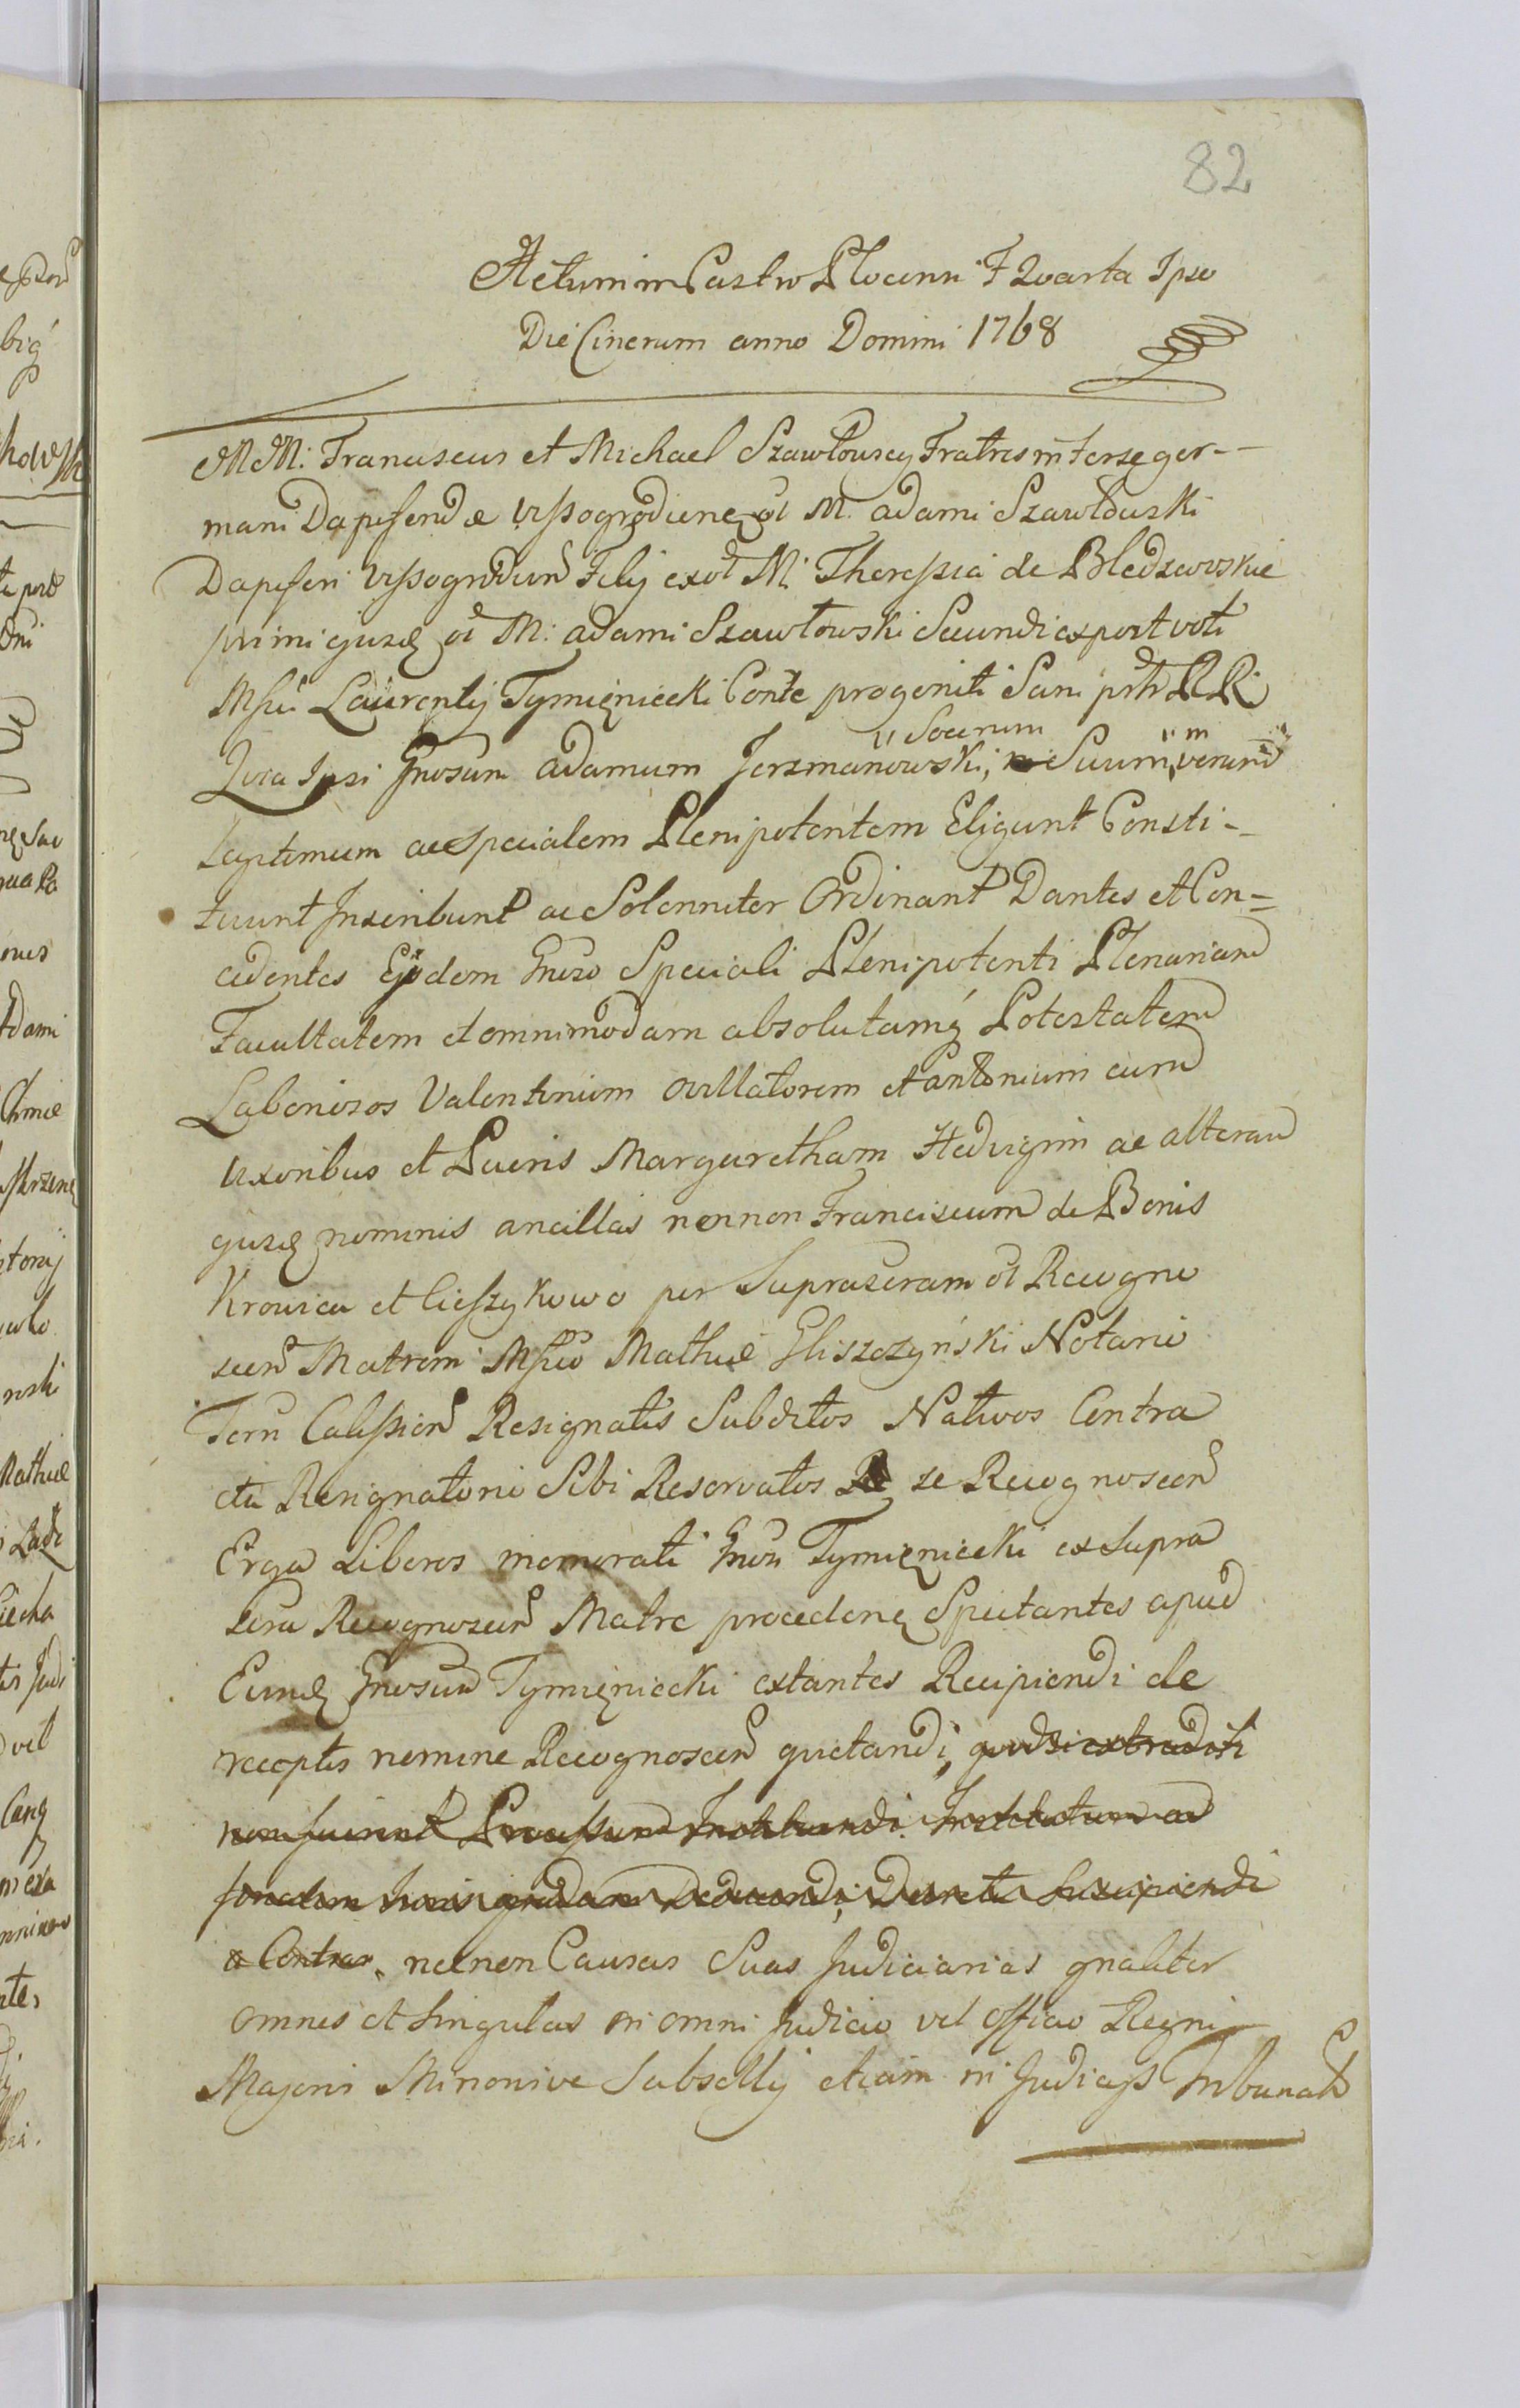 82
Actum in Castro Plocen̄ F Quarta Ipso
Die Cinerum anno Domini 1768
MM: Franciscus et Michael Szawłowscy Fratres inter se ger-
mani Dapiferid æ Vissogrodienes ol M. Adami Szawłowski
Dapiferi Vissogrodien̄ Filij ex ol M: Theressia de Bledzewskie
primi ejusq ol M: Adami Szawłowski Secundi expost voti
Mfci Laurentij Tymięniecki Conte progeniti Sani prtr RR
" Socerum
Jura Ipsi Gnosum Adamum Jerzmanowski, Suum, " m verum
Legitimum ac specialem Plenipotentem Eligunt Consti-
tuunt Inscribunt ac Solenniter Ordinant Dantes et Con=
cedentes Ejdem Gnoso Speciali Plenipotenti Plenariam
Facultatem et omnimodam absolutamq Potestatem
Laboriosos Valentinum ovillatorem et Antonium cum
Uxoribus et Pueris Margaretham Hedvigim ac alteram
ejusq nominis ancillas necnon Franciscum de Bonis
Krowica et Cieszykowo per Suprascram ol Recogno
scen̄ Matrem Mfco Mathiæ Gliszczyński Notario
Terr̄ Calissien̄ Resignatis Subditos Nativos Contra
ctu Resignatorio Sibi Reservatos se Recognoscen̄
Erga Liberos memorati Gnosi Tymięniecki ex supra
scra Recognoscen̄ Matre procedenq Spectantes apud
Eundq Gnosum Tymięniecki extantes Recipiendi de
receptis nomine Recognoscen̄ quietandi, quodsi extraditi
non fuerint Processum Instituendi Institutum ad
Juris Deducendi, Decreta Suscipiendi
a Contrar. necnon Causas Suas Judiciarias gnaliter
omnes et singulas in omni Judicio vel officio Regni
Majoris Minorive Subsellij etiam in Judicijs Tribunal